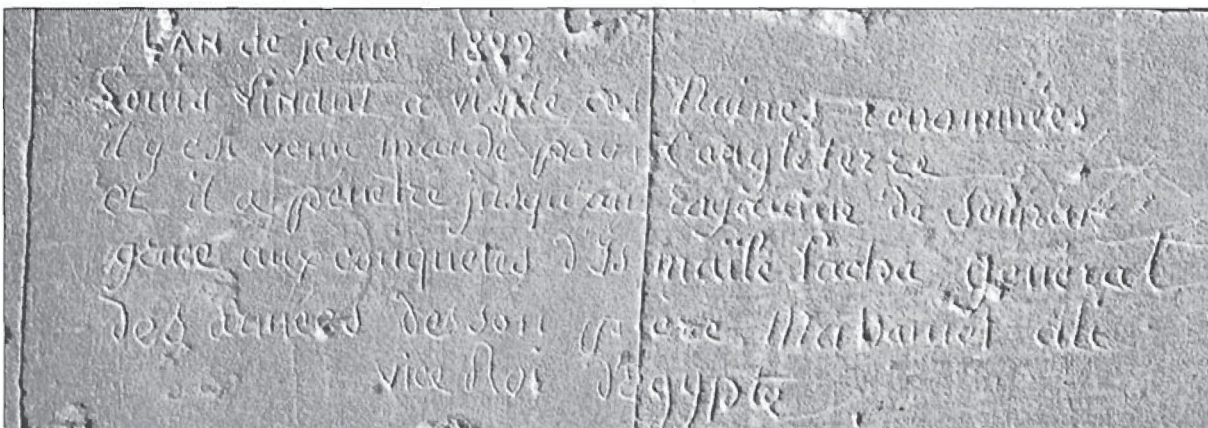 LAN de jesus 1822
Louis Linant a visité ces Ruines renommées
il y est venu mandé par l'angleterre
et il a pénétré jusqu'au rayaume de Sennar
grace aux conquetes d'Ismaïle Pacha general
des armées de son pere Mahamet ali
vice Roi d'Egypte